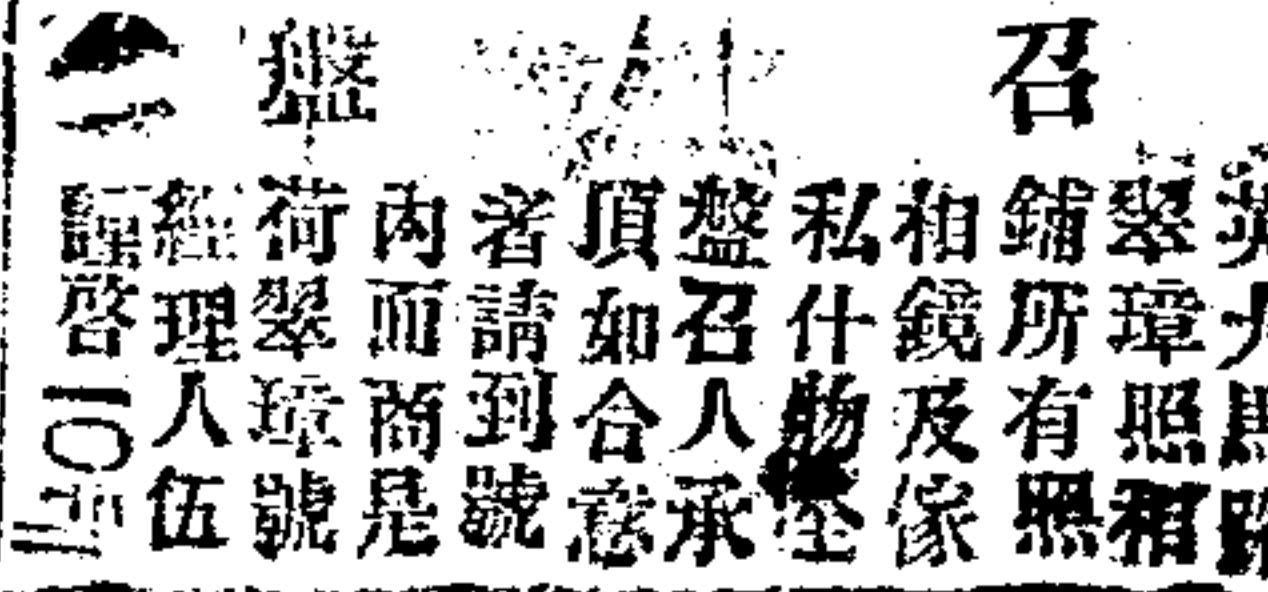 召盤
英大馬路
翠璋照相
鋪所有照
相鏡及傢
私什物全
盤召人承
頂如合意
者請到號
內面商是
荷翠璋號
經理人伍
謹啓